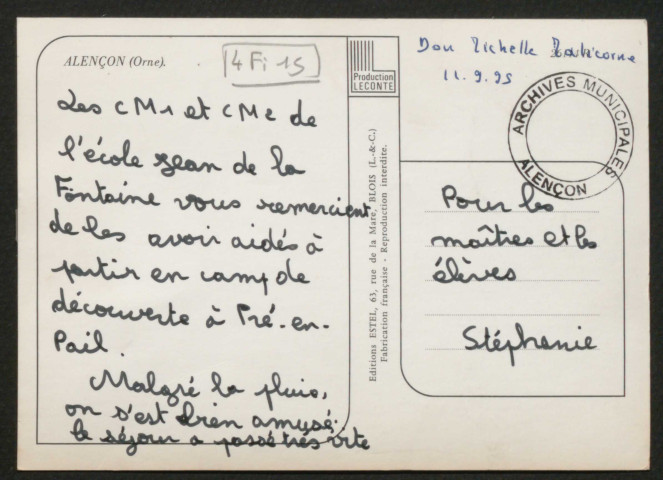 ALENÇON (Orne).
4 Fi 15
Production
LECONTE
Don Michelle
11.9.95
ARCHIVES MUNICIPALES
ALENÇON
Les CM1 et CM2 de
l'école Jean de la
Fontaine vous remercient
de les avoir aidés à
partir en camp de
découverte à Pré-en-
Pail.
Malgré la pluie,
on s'est bien amusé;
le séjour a passé très vite
Editions ESTEL, 63, rue de la Mare, BLOIS (L.-&-C.)
Fabrication française - Reproduction interdite.
Pour les
maîtres et les
élèves
Stéphanie